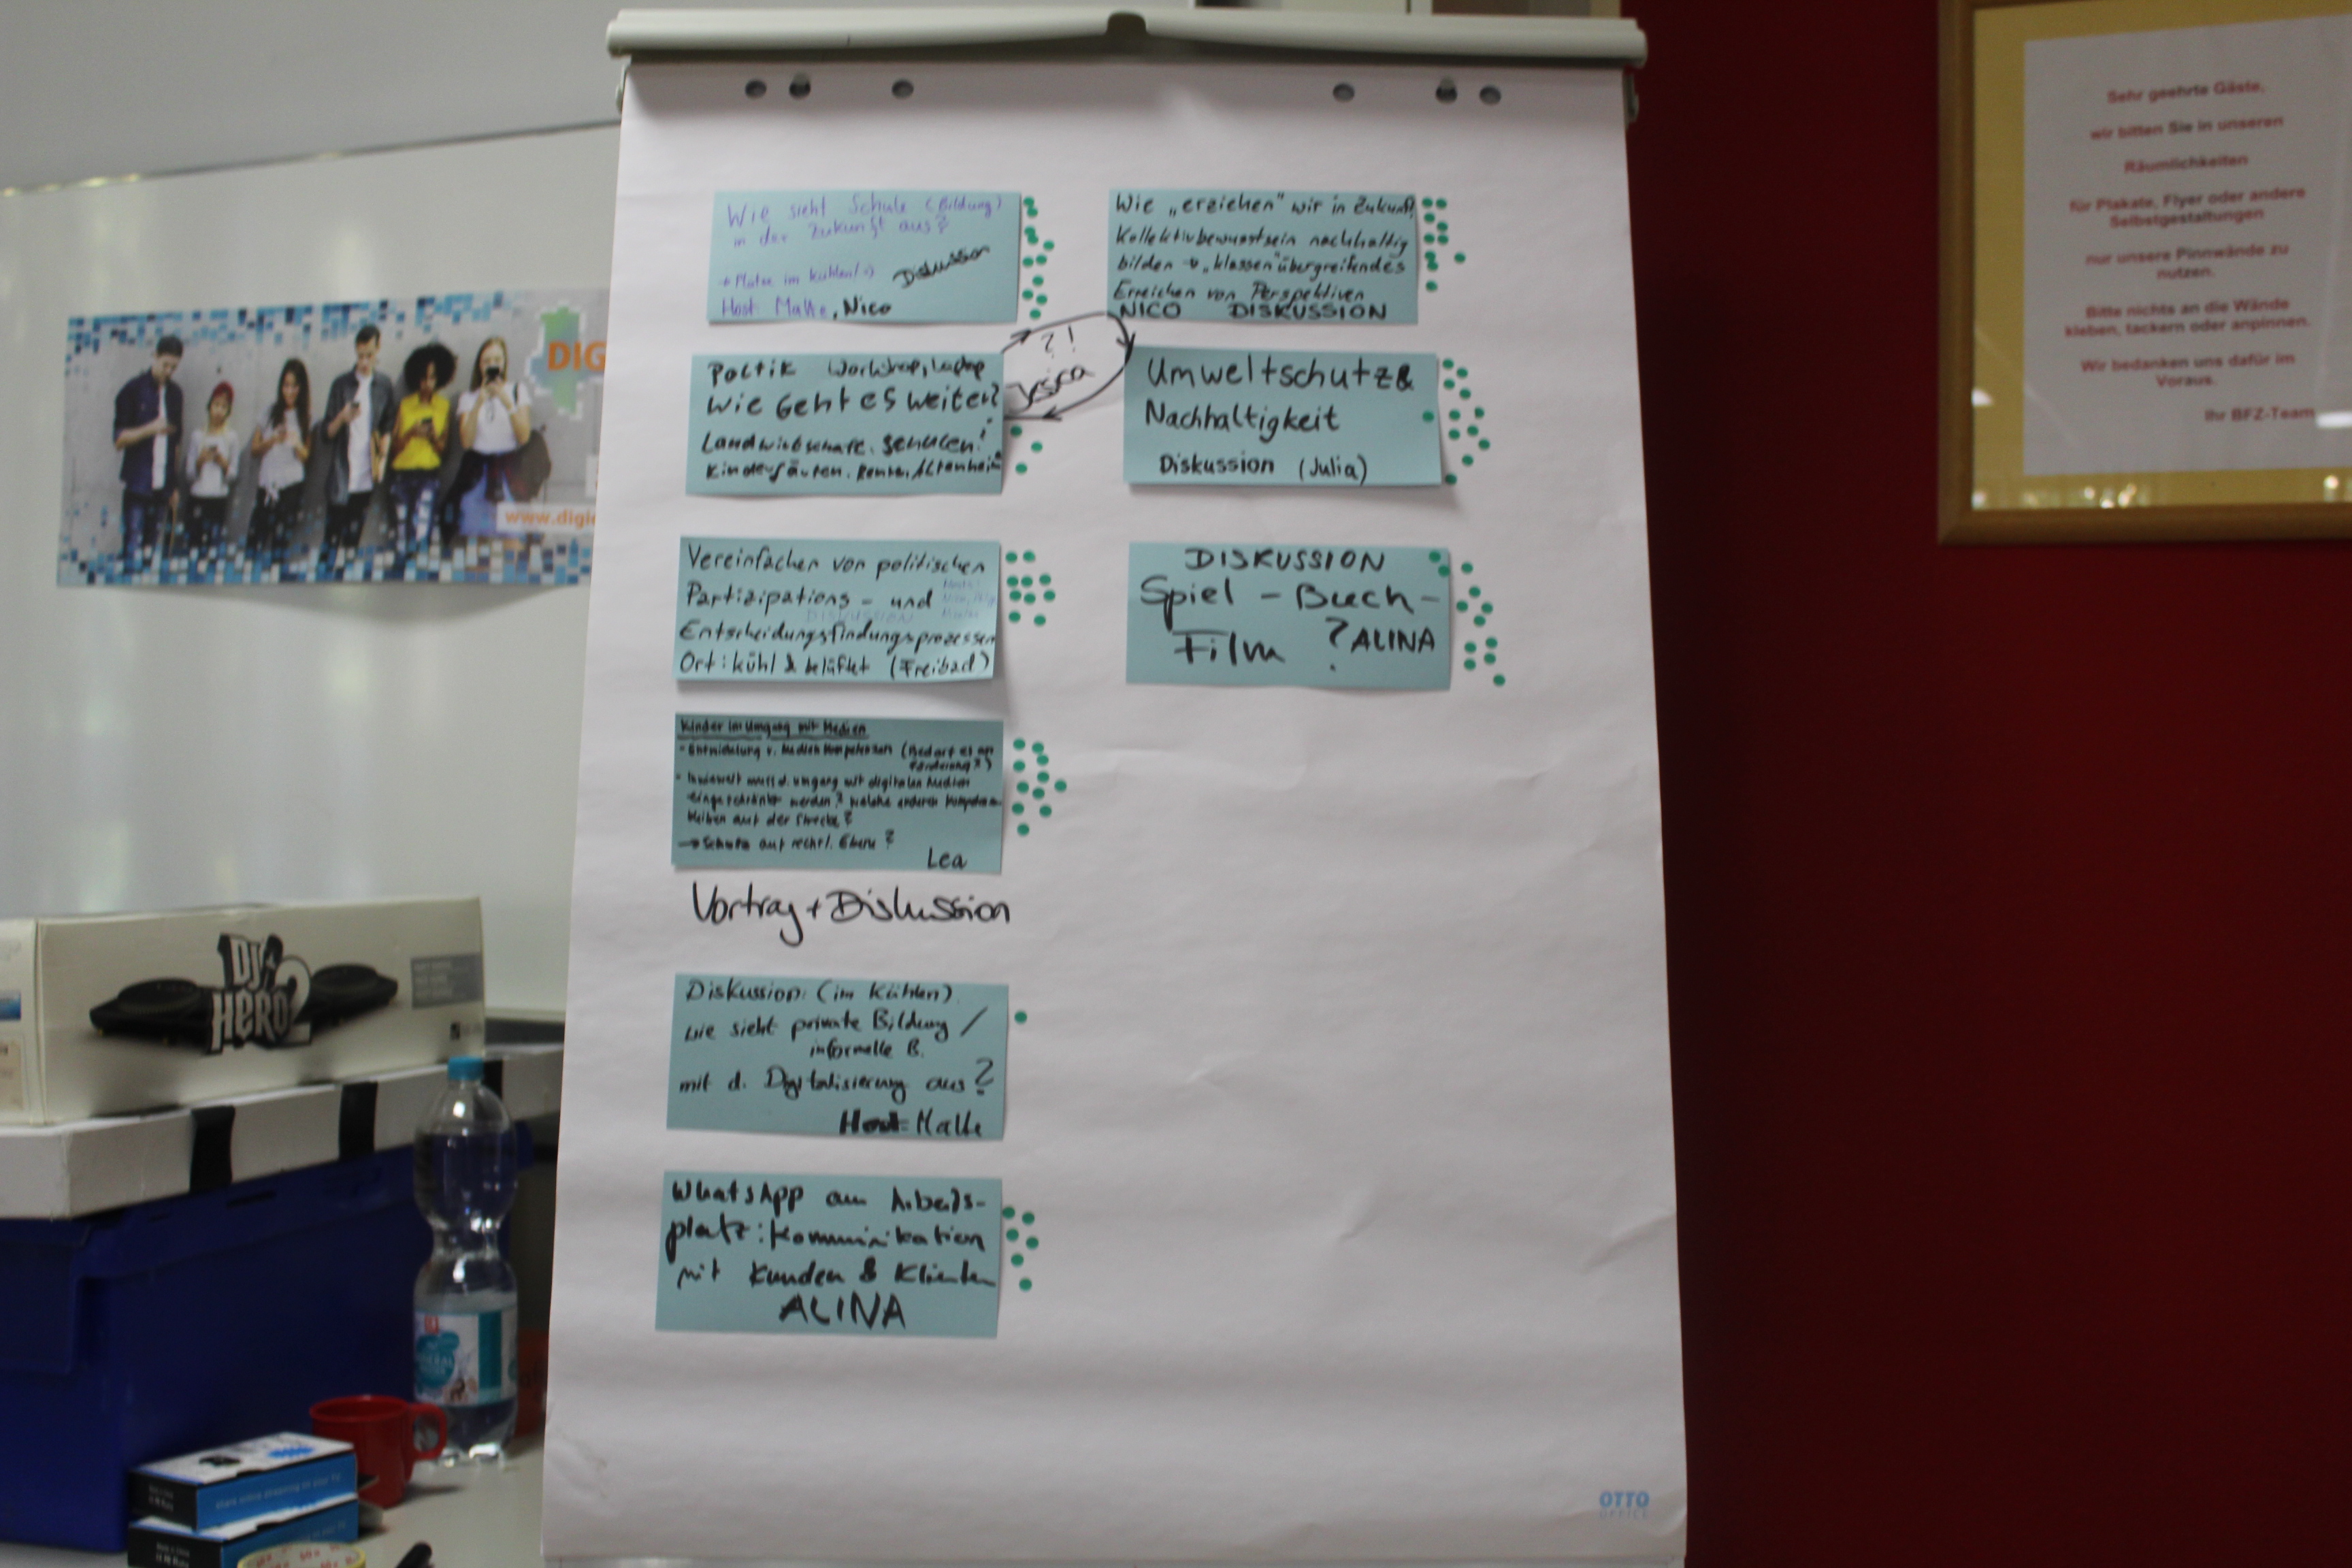 Wie sieht Schule (Bildung)
in der Zukunft aus?
Diskussion
Host Malte, Nico
Wie „erziehen" wir in Zukunft?
Kollektivbewusstsein nachhaltig
bilden → „klassen"übergreifendes
Erreichen von Perspektiven
NICO DISKUSSION
?!
Wie Geht es weiter?
Landwirtschaft. Schulen!
Umweltschutz &
Nachhaltigkeit
Diskussion (Julia)
Vereinfachen von politischen
Partizipations- und
DISKUSSION
Entscheidungsfindungsprozessen
Ort: kühl & belüftet (Freibad)
DISKUSSION
Spiel - Buch -
Film ? ALINA
Kinder im Umgang mit Medien
- Entwicklung v. Medienkompetenzen (Bedarf es an
Förderung?)
- Inwieweit muss d. Umgang mit digitalen Medien
eingeschränkt werden? Welche anderen Kompetenzen
bleiben auf der Strecke?
→ Schutz auf rechtl. Ebene?
Lea
Vortrag + Diskussion
Diskussion: (im Kühlen)
wie sieht private Bildung /
informelle B.
mit d. Digitalisierung aus?
Host: Malte
WhatsApp am Arbeits-
platz: Kommunikation
mit Kunden & Klienten
ALINA
OTTO
OFFICE
DIG
www.digi
DJ
HERO 2
Sehr geehrte Gäste,
wir bitten Sie in unseren
Räumlichkeiten
für Plakate, Flyer oder andere
Selbstgestaltungen
nur unsere Pinnwände zu
nutzen.
Bitte nichts an die Wände
kleben, tackern oder anpinnen.
Wir bedanken uns dafür im
Voraus.
Ihr BFZ-Team